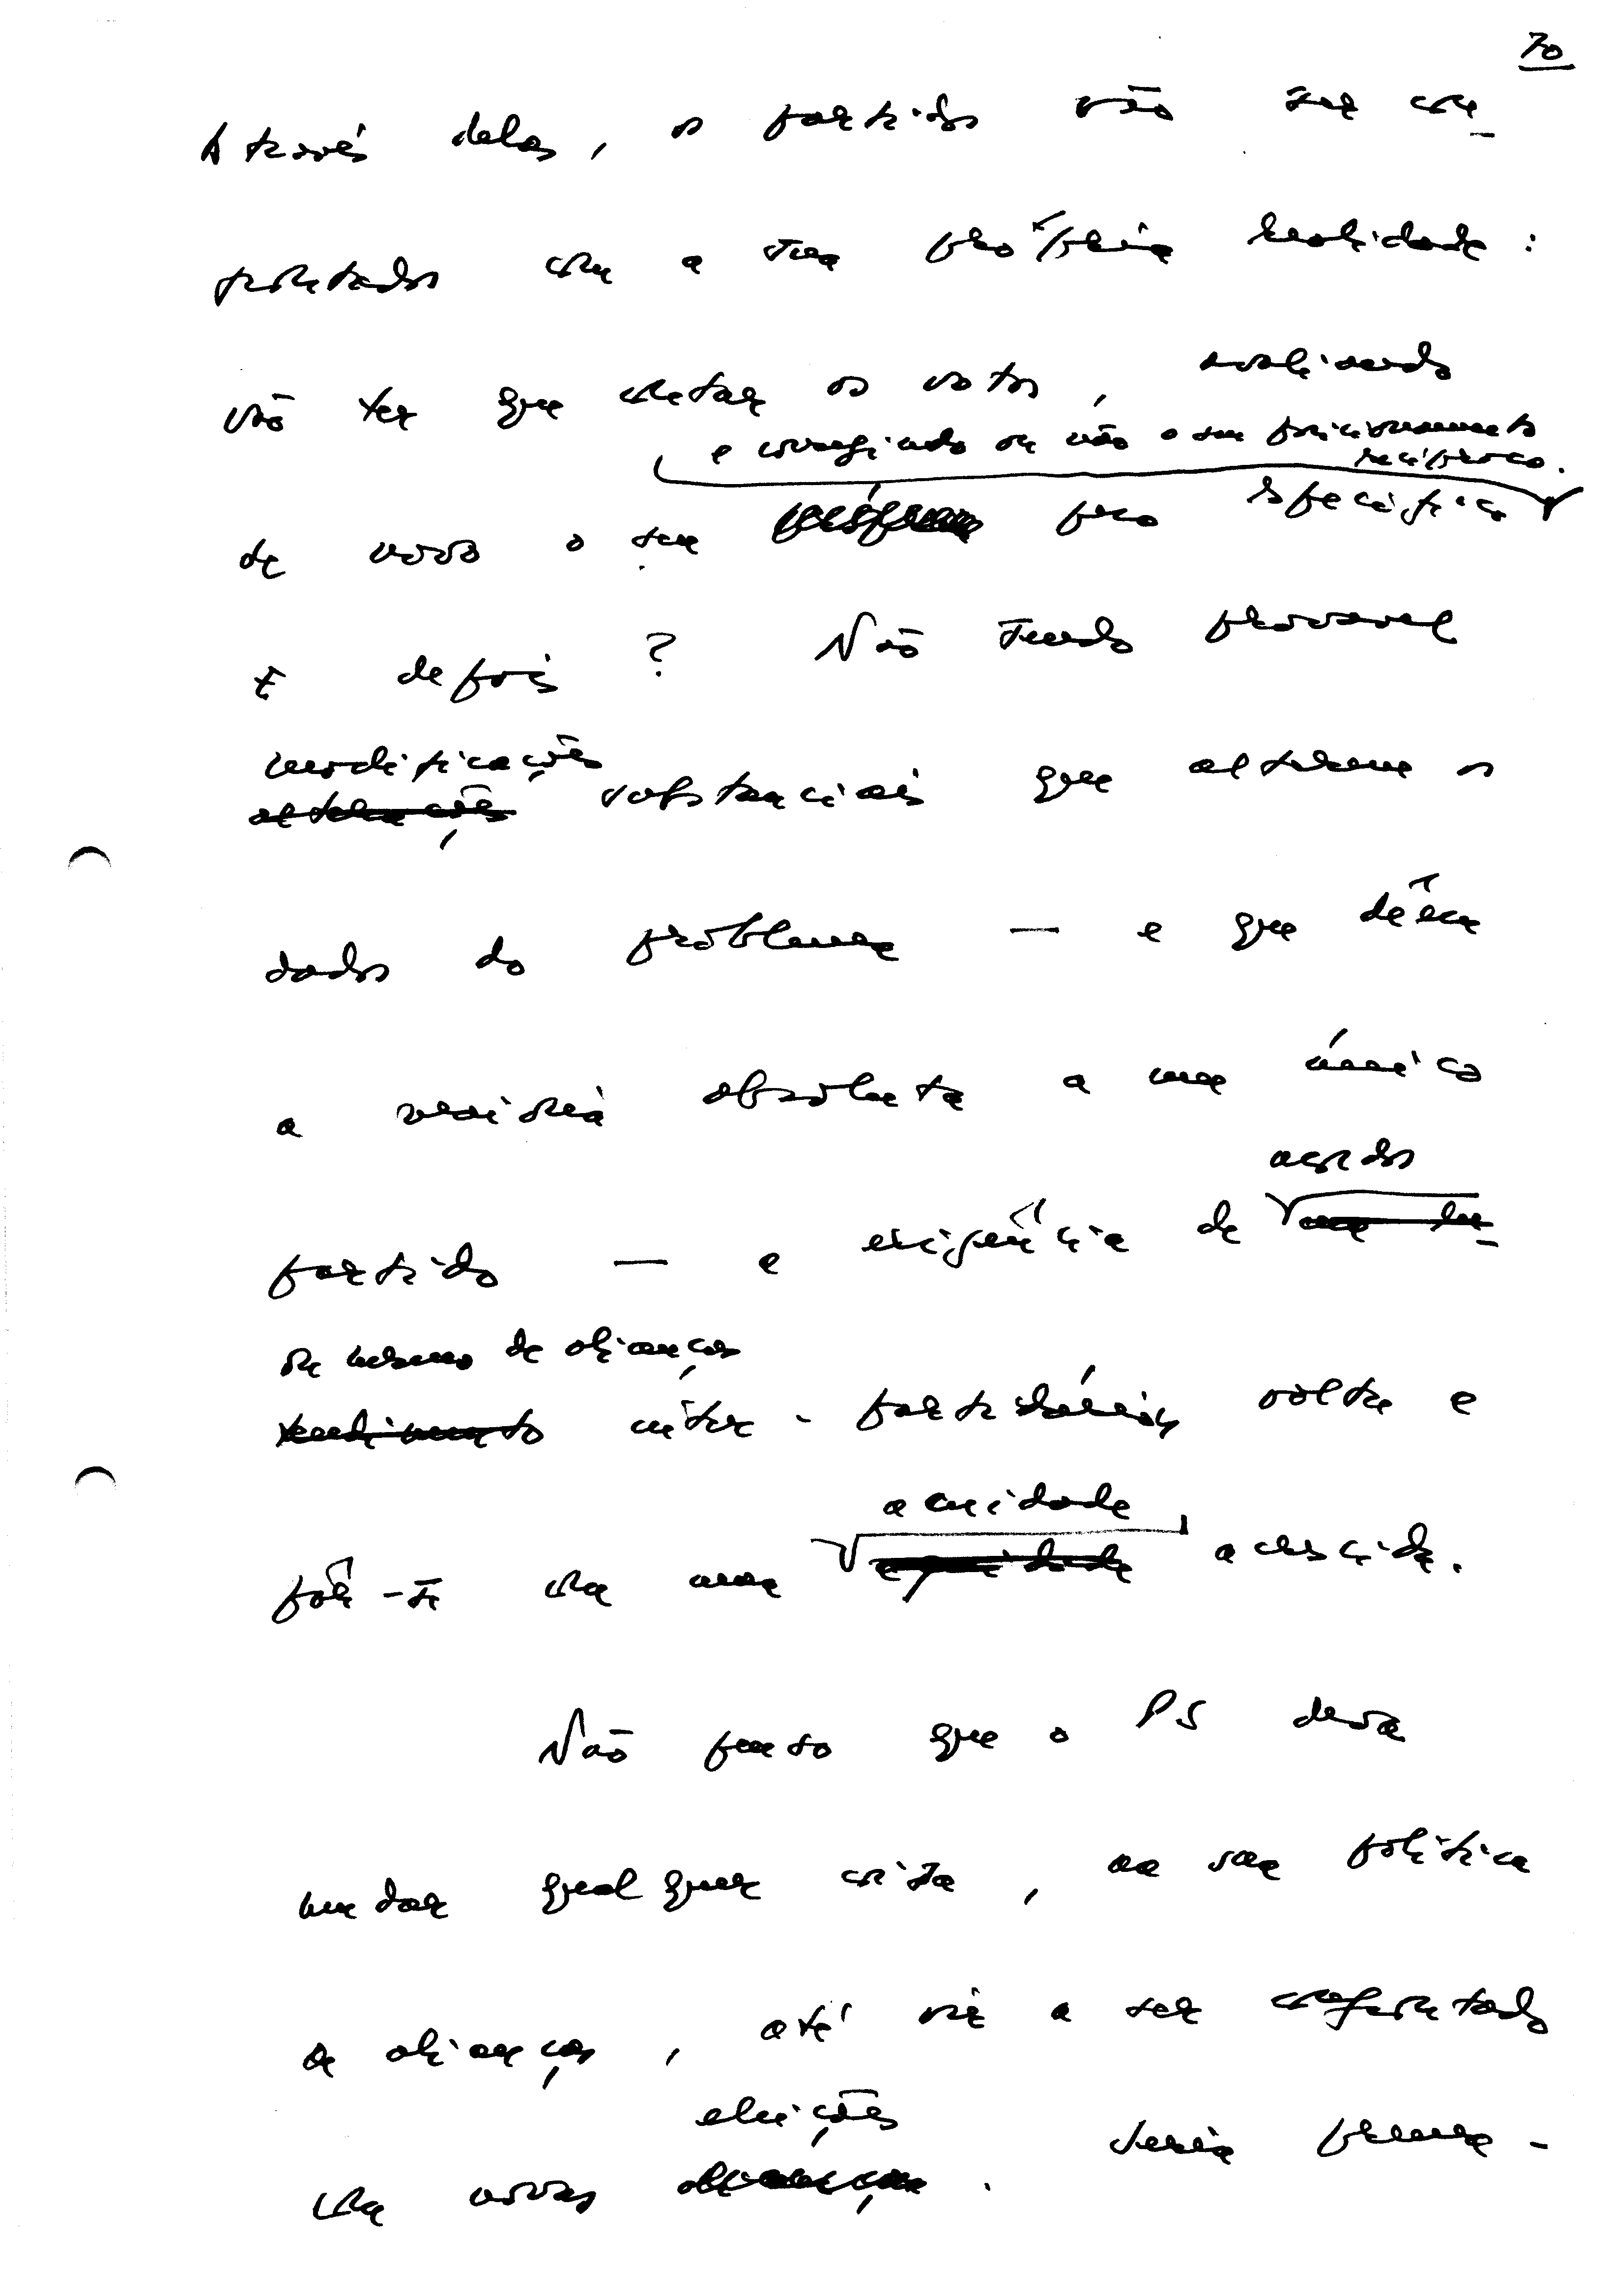 70
Através delas, os partidos vão ser con-
frontados com a sua própria realidade:
vão ter que contar os votos, avaliando
e corrigindo ou não o seu posicionamento
recíproco.
de novo o seu peso específico
E depois? Não sendo provável
modificações
alterações substanciais que alterem os
dados do problema — e que dêem
a maioria absoluta a um único
acordos
partido — a exigência de um en-
ou mesmo de alianças
tendimento inter-partidários volta a
acuidade
pôr-se com uma acuidade acrescida.
Não penso que o PS deva
mudar qualquer coisa, na sua política
de alianças, até vir a ser confrontado
eleições
com novas alianças. Seria prema-